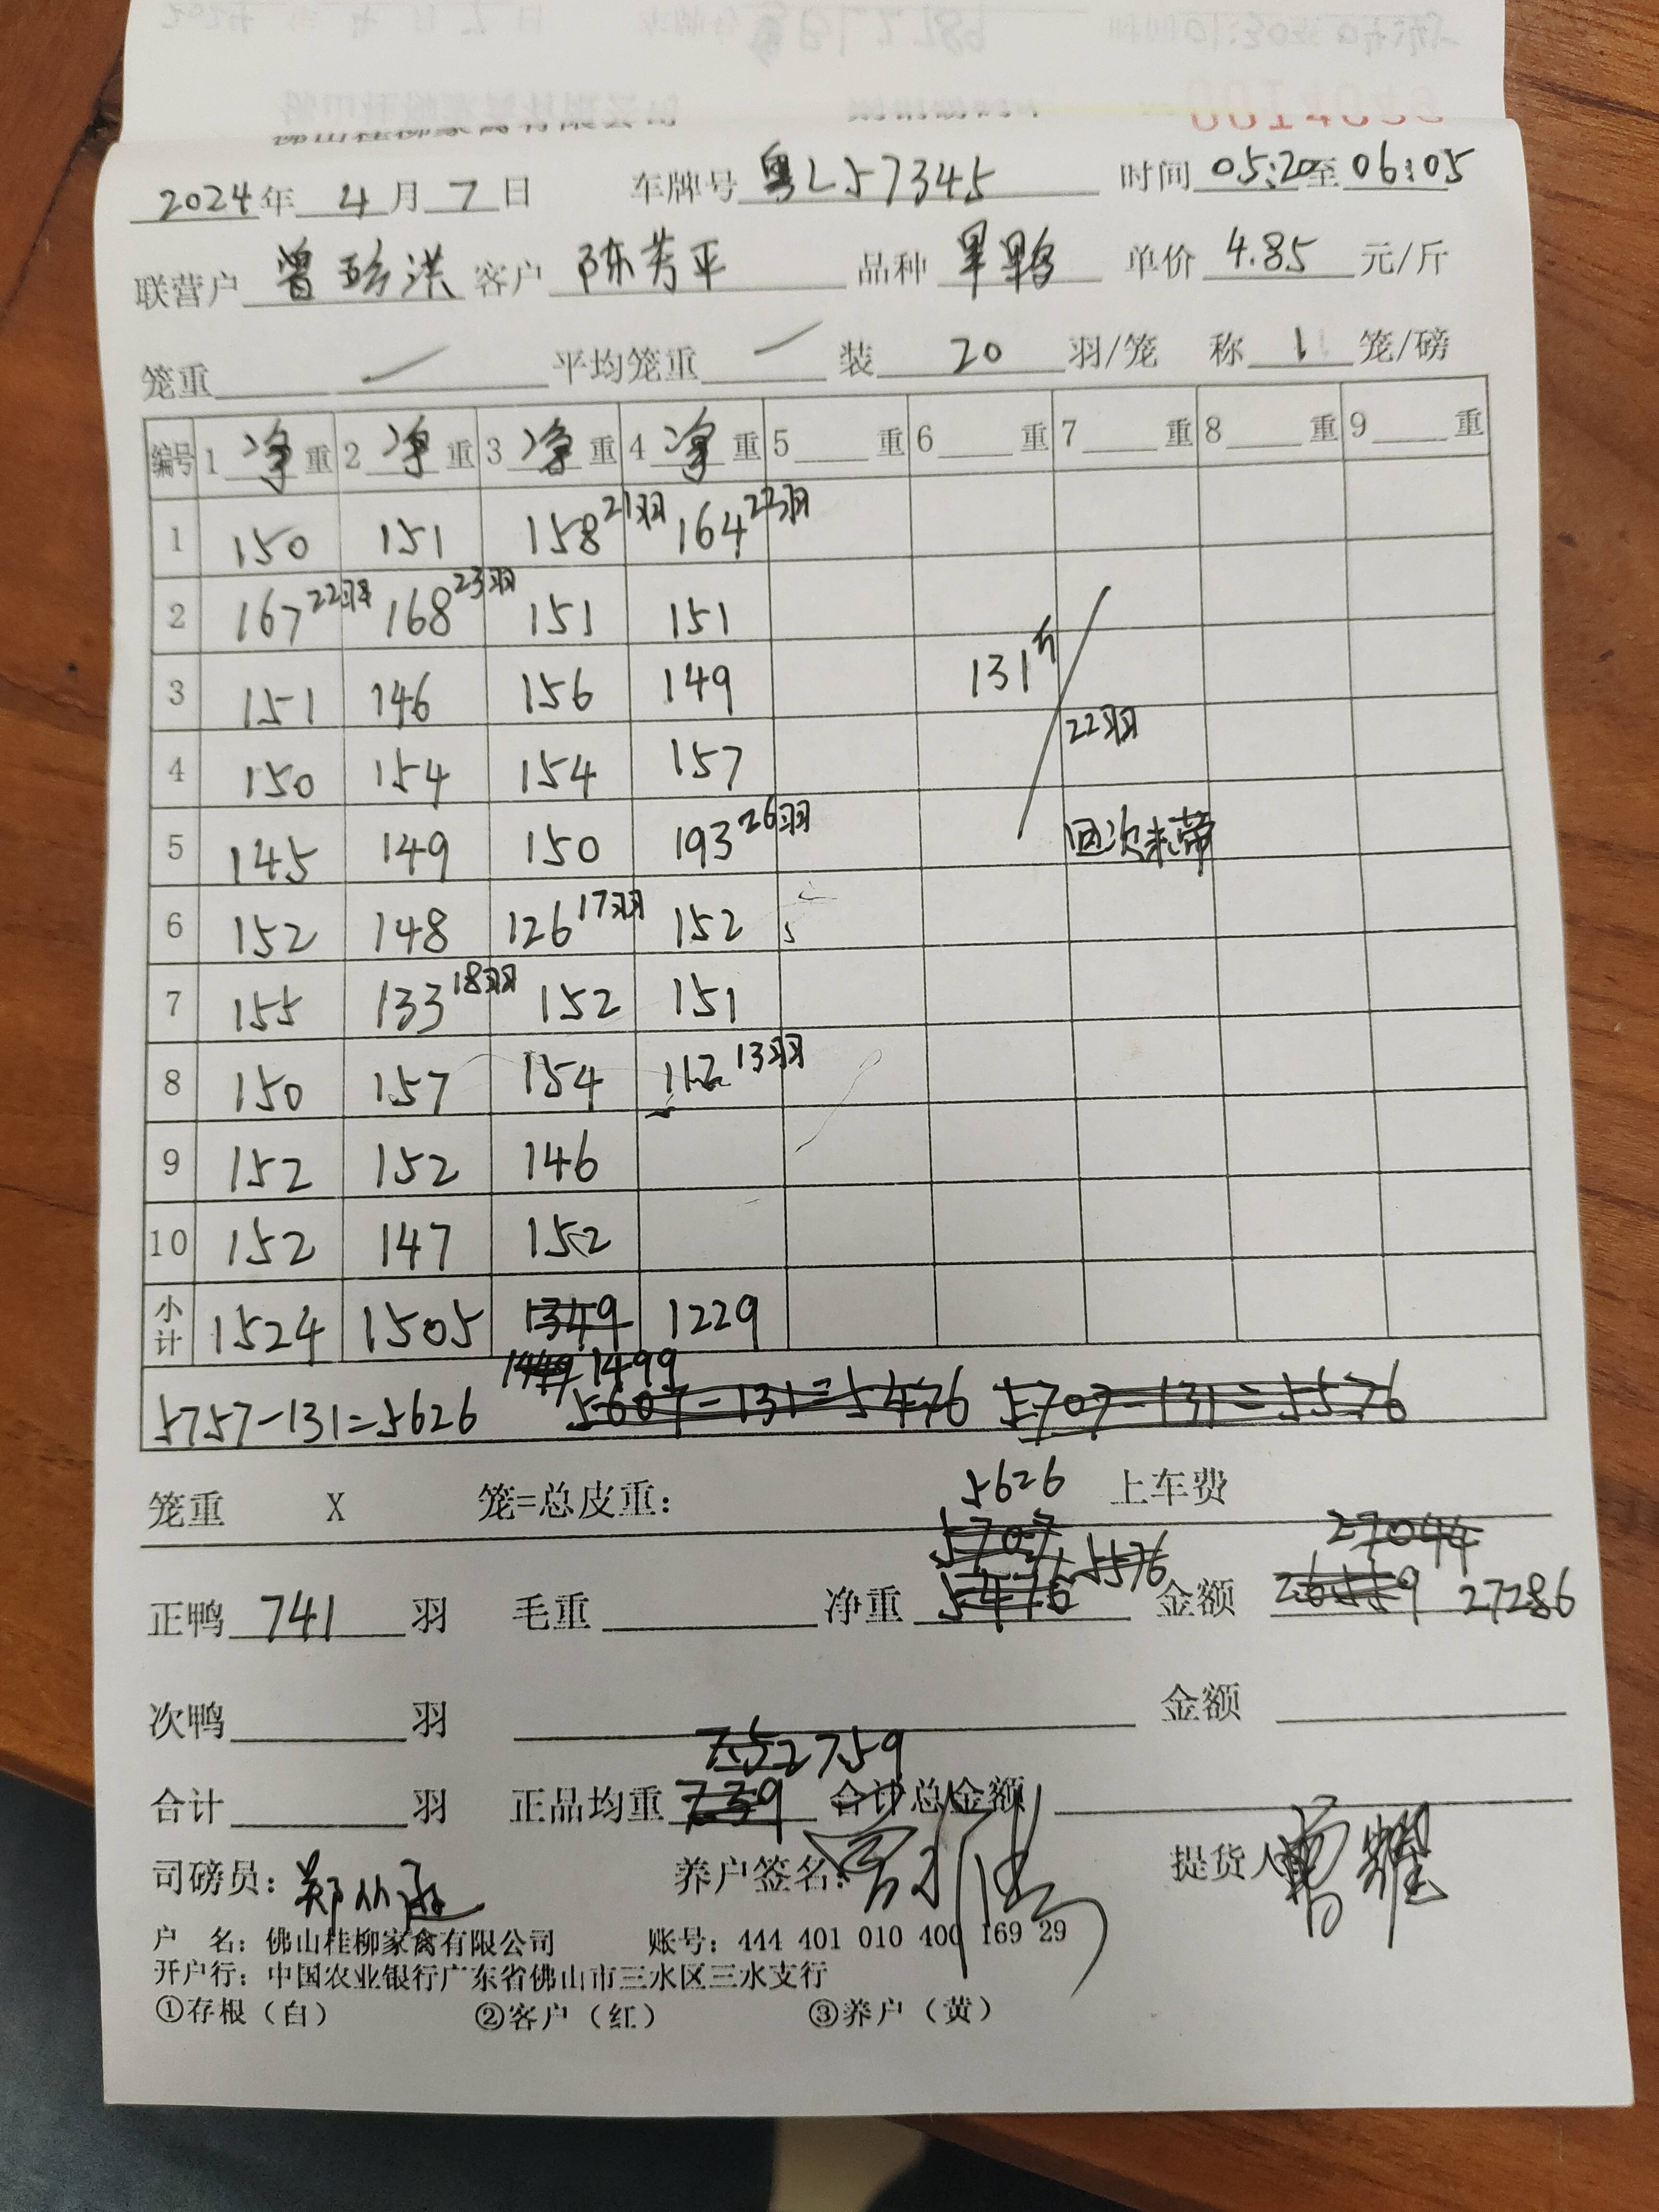 2024年 4月 7日 车牌号 粤L57345 时间 05:20至06:05
联营户 曾 洪 客户 陈芳平 品种 单价 4.85 元/斤
笼重 平均笼重 装 20 羽/笼 称 1 笼/磅
编号 1 净重 2 净重 3 净重 4 净重 5 重 6 重 7 重 8 重 9 重
1 150 151 158 21羽 164 22羽
2 167 22羽 168 23羽 151 151
3 151 146 156 149 131斤
4 150 154 154 157 22羽
5 145 149 150 193 26羽 回次未带
6 152 148 126 17羽 152
7 155 133 18羽 152 151
8 150 157 154 112 13羽
9 152 152 146
10 152 147 152
小计 1524 1505 1349 1229
1449 1499
5757-131=5626 5607-131=5476 5707-131=5576
5626
笼重 X 笼=总皮重: 上车费
5707 5576 27044
正鸭 741 羽 毛重 净重 5476 金额 26559 27286
次鸭 羽 金额
752 759
合计 羽 正品均重 739 合计总金额
司磅员: 郑 养户签名: 提货人 曹耀
户 名: 佛山桂柳家禽有限公司 账号: 444 401 010 400 169 29
开户行: 中国农业银行广东省佛山市三水区三水支行
①存根(白) ②客户(红) ③养户(黄)